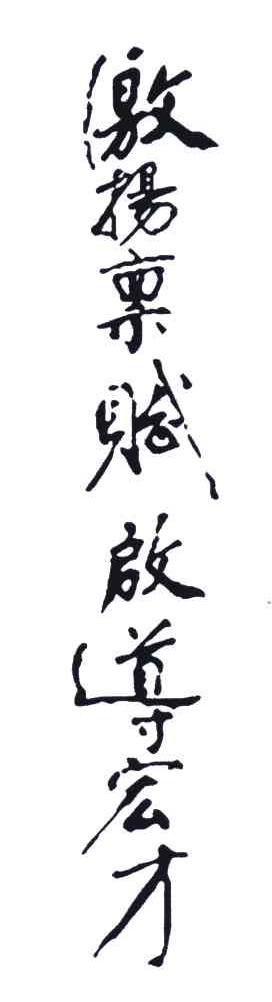 激揚稟賦啟導宏才